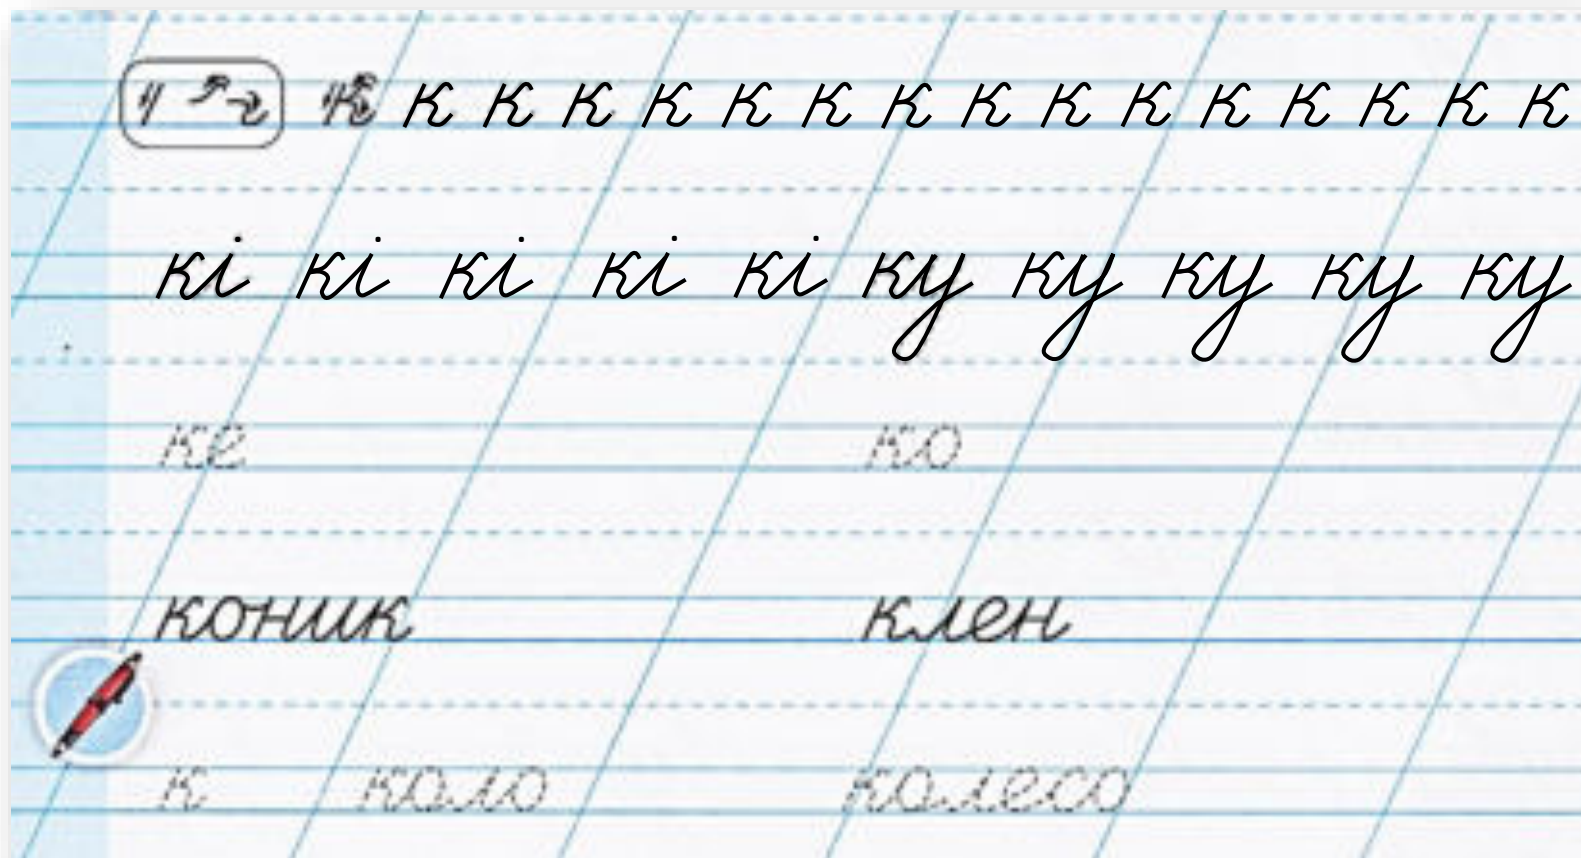 к к к к к к к к к к к к к к к к
кі кі кі кі кі ку ку ку ку ку
ке ко
коник клен
к коло колесо